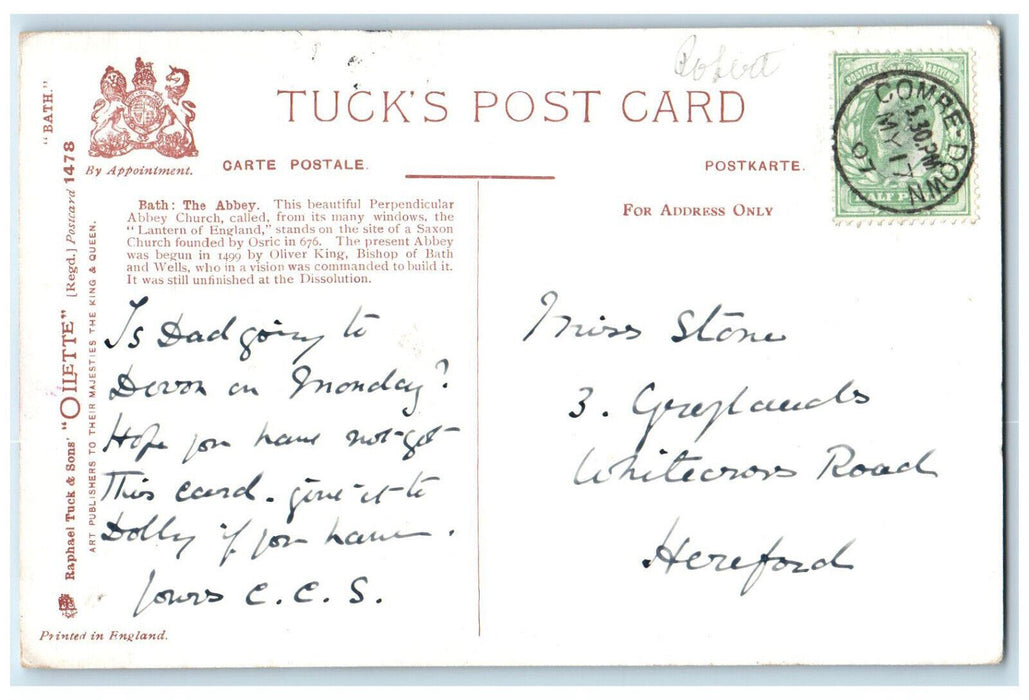 Robert
TUCK'S POST CARD
By Appointment.
CARTE POSTALE.
POSTKARTE.
"BATH."
Raphael Tuck & Sons' "OILETTE" [Regd.] Postcard 1478
ART PUBLISHERS TO THEIR MAJESTIES THE KING & QUEEN.
Bath: The Abbey. This beautiful Perpendicular
Abbey Church, called, from its many windows, the
"Lantern of England," stands on the site of a Saxon
Church founded by Osric in 676. The present Abbey
was begun in 1499 by Oliver King, Bishop of Bath
and Wells, who in a vision was commanded to build it.
It was still unfinished at the Dissolution.
FOR ADDRESS ONLY
POSTAGE & REVENUE
HALF PENNY
COMBE-DOWN
5.30 PM
MY 17
07
Is Dad going to
Devon on Monday?
Hope you have not got
this card. give it to
Dolly if you have.
Yours C.C.S.
Miss Stone
3. Greylands
Whitecross Road
Hereford
Printed in England.